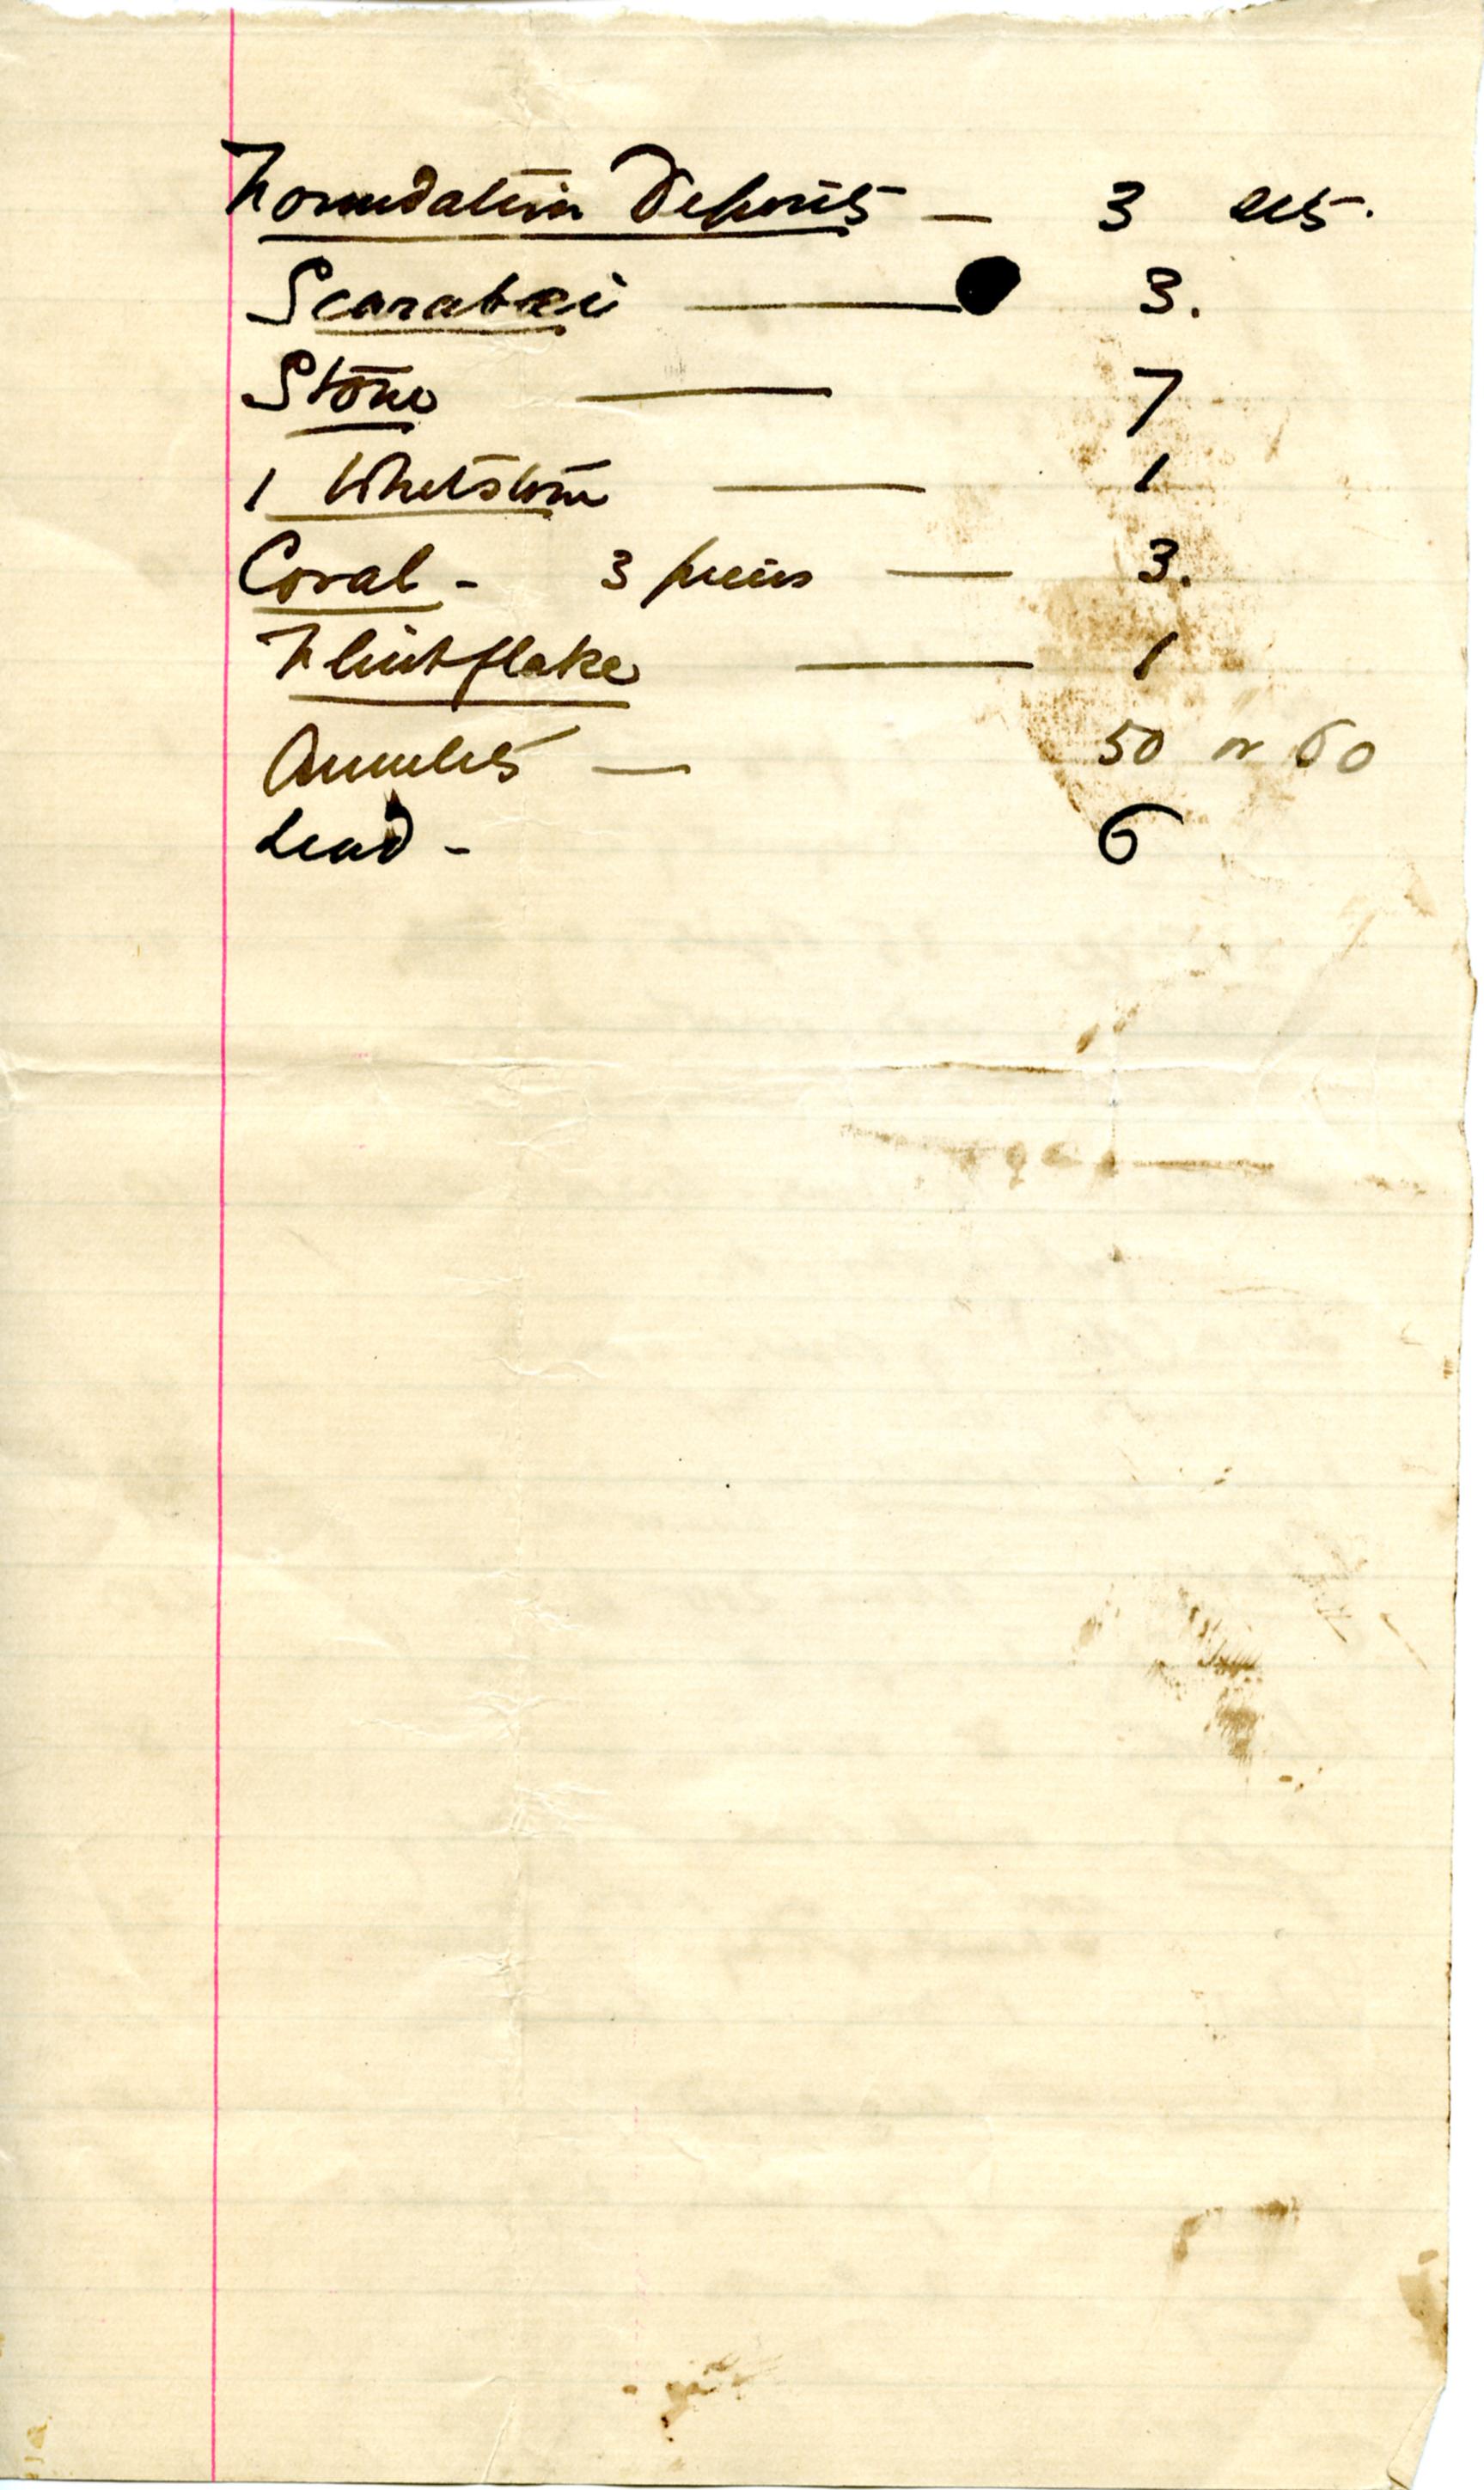 Foundation Deposits — 3 sets.
Scarabæi — 3.
Stone — 7
1 Whetstone — 1
Coral - 3 pieces — 3.
Flint flake — 1
Amulets — 50 or 60
Lead - 6